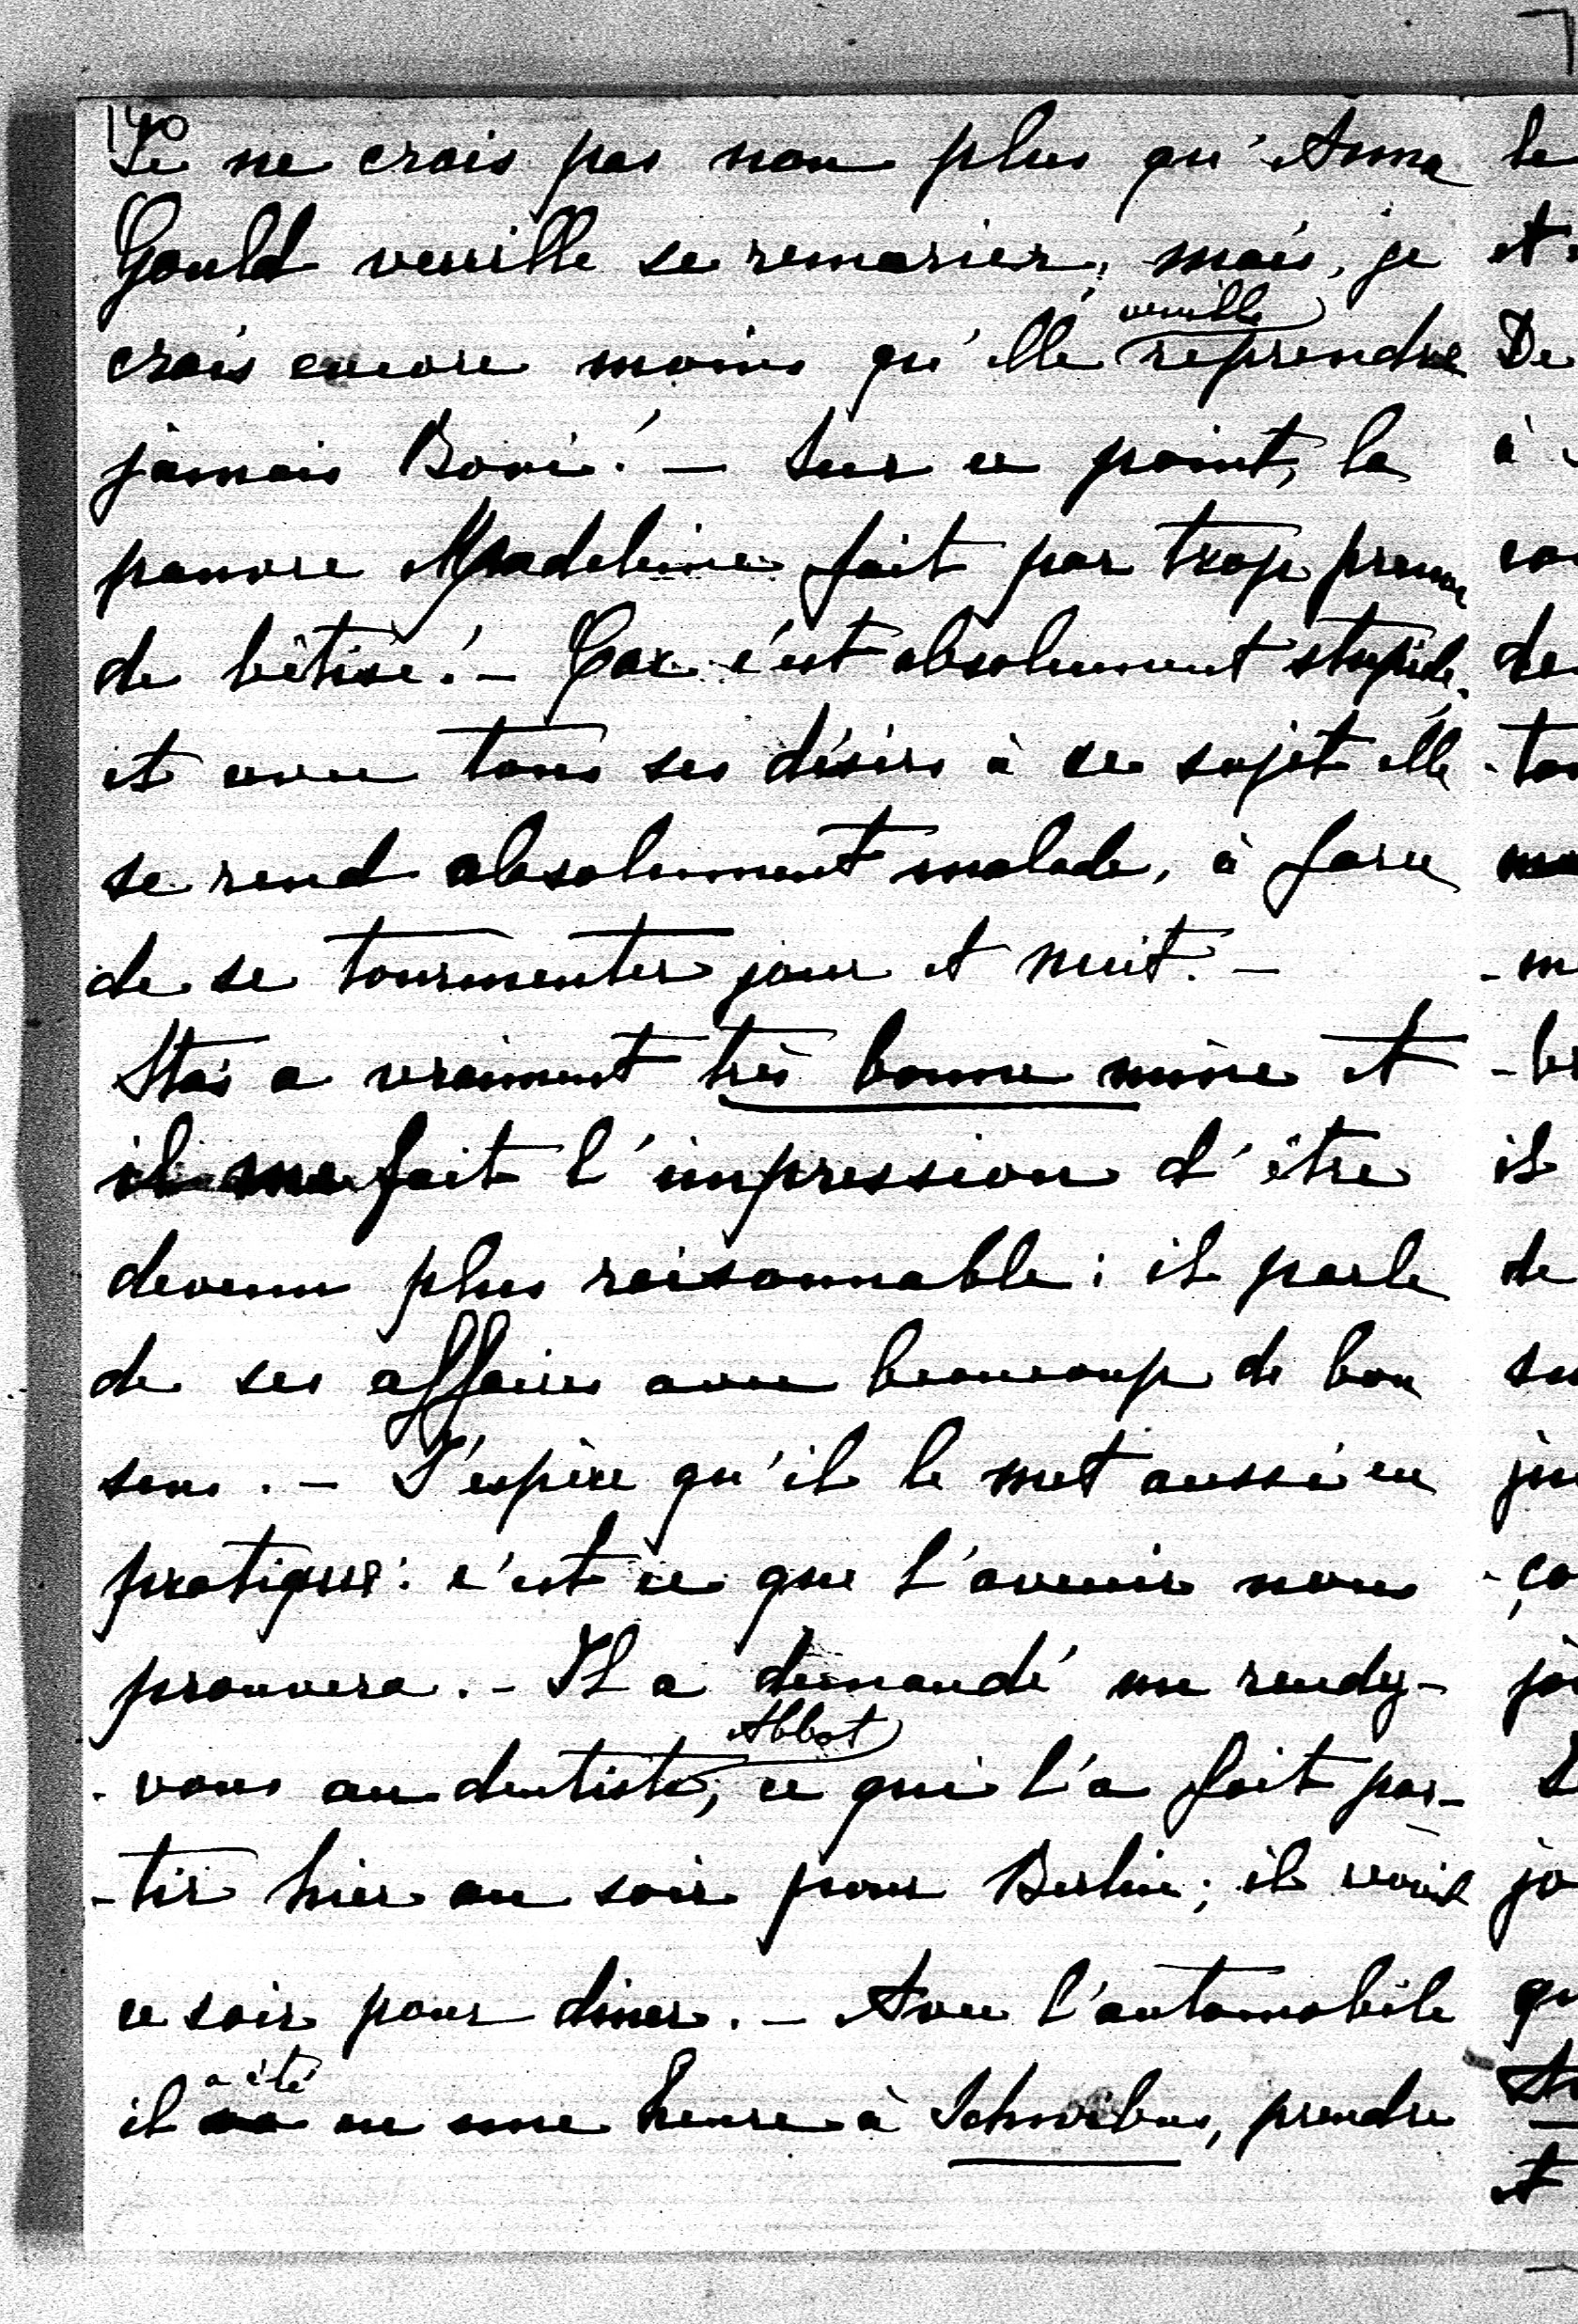 140
Je ne crois pas non plus qu'Anna
Gould veuille se remarier, mais, je
veuille
crois encore moins qu'elle reprendre
jamais Boni! – Sur ce point, la
pauvre Madeleine fait par trop preuve
de bêtise! – Car c'est absolument stupide,
et avec tous ses désirs à ce sujet elle
se rend absolument malade, à force
de se tourmenter jour et nuit. –
Stas a vraiment très bonne mine et
il me fait l'impression d'être
devenu plus raisonnable: il parle
de ses affaires avec beaucoup de bon
sens. – J'espère qu'il le met aussi en
pratique: c'est ce que l'avenir nous
prouvera. – Il a demandé un rendez-
Abbot
-vous au dentiste, ce qui l'a fait par-
-tir hier au soir pour Berlin; il revient
ce soir pour dîner. – Avec l'automobile
a été
il en une heure à Schwibus, prendre